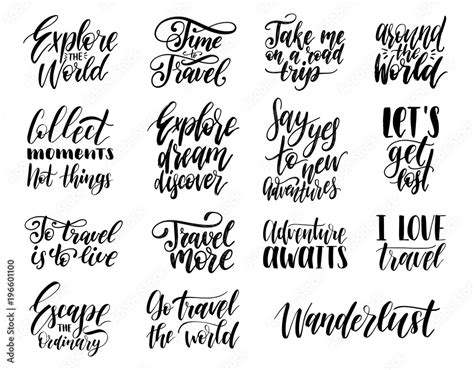 Explore
THE
World
Time
to
Travel
Take me
on a road
trip
around
the
World
Collect
moments
Not things
Explore
dream
discover
Say
yes
to new
adventures
LET'S
get
lost
To travel
is to live
Travel
more
Adventure
AWAITS
I LOVE
travel
Escape
THE
Ordinary
Go travel
the world
Wanderlust
Adobe Stock | #196601100